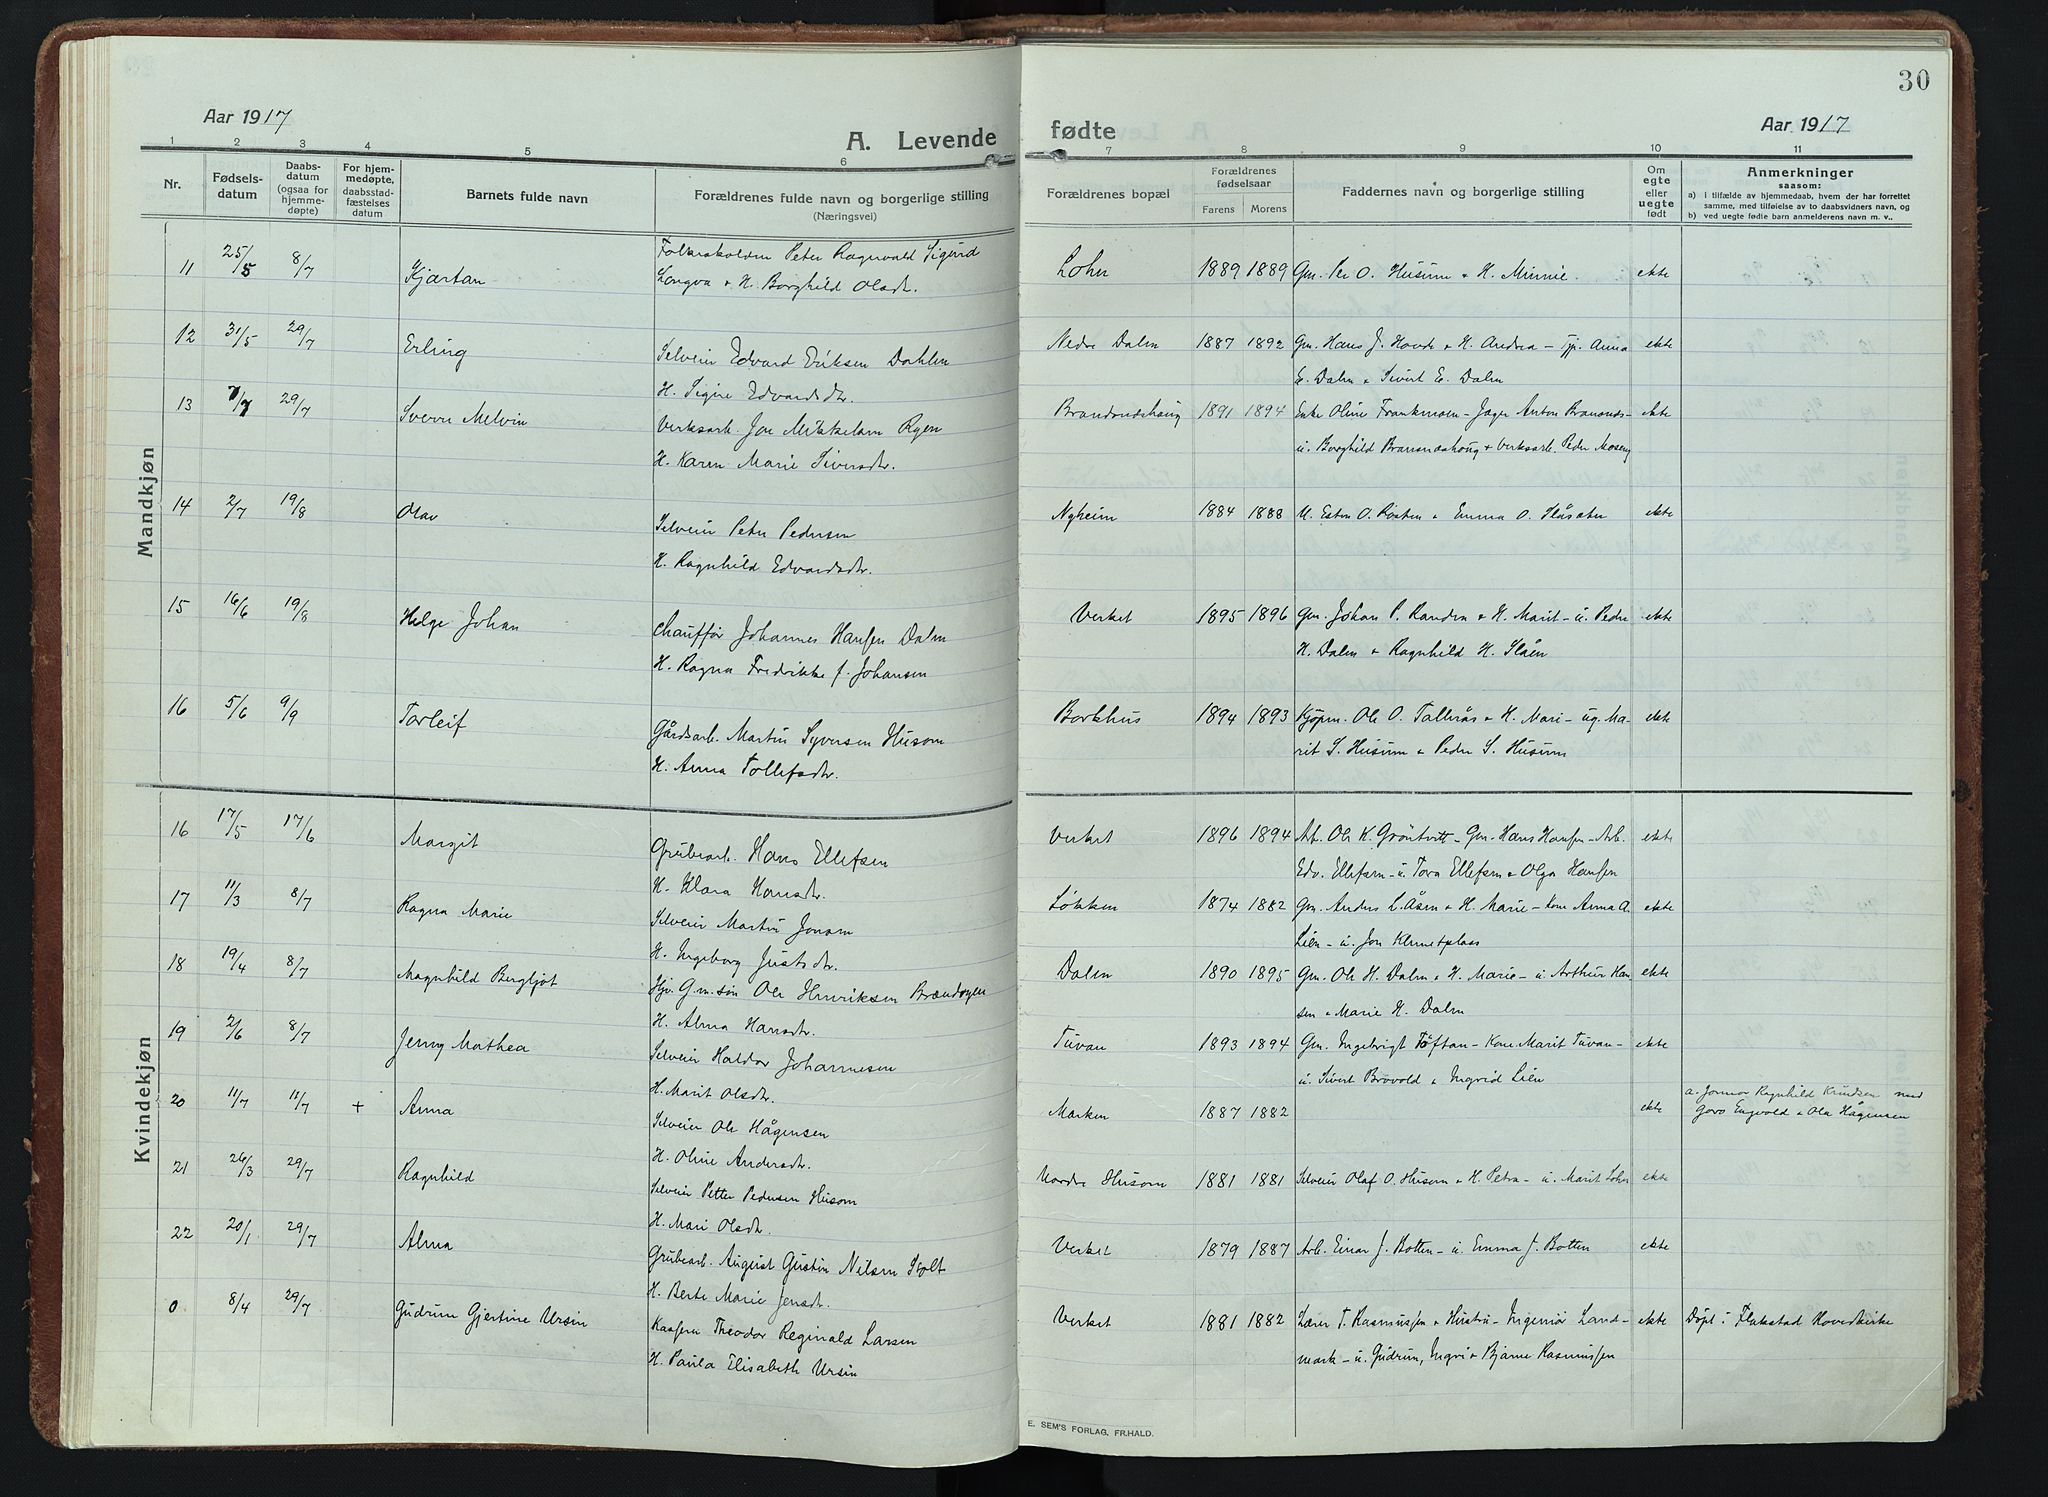 30
Aar 1917
A. Levende fødte
Aar 1917
1 2 3 4 5 6 7 8 9 10 11
Nr.
Fødselsdatum
Daabsdatum (ogsaa for hjemmedøpte)
For hjemmedøpte, daabsstadfæstelses datum
Barnets fulde navn
Forældrenes fulde navn og borgerlige stilling (Næringsvei)
Forældrenes bopæl
Forældrenes fødselsaar
Farens Morens
Faddernes navn og borgerlige stilling
Om egte eller uegte født
Anmerkninger
saasom:
a) i tilfælde av hjemmedaab, hvem der har forrettet samme, med tilføielse av to daabsvidners navn, og
b) ved uegte fødte barn anmelderens navn m. v..
Mandkjøn
11 25/5 8/7 Kjartan Peter Ragnvald Sigurd Lohn 1889 1889 Gm. Per O. Husum & H. Minnie. ekte
Longva & H. Borghild Olsdtr.
12 31/5 29/7 Erling Selveier Edvard Eriksen Dahlen Nedre Dalen 1887 1892 Gm. Hans J. Hovde & H. Andrea - Anna ekte
H. Signe Edvardsdtr. E. Dalen & Sivert E. Dalen
13 29/7 Sverre Melvin Verksarb. Jon Mikkelsen Ryen 1891 1894 Enke Oline - Anton ekte
H. Karen Marie Siversdtr. u. Borghild & Verksarb. Peder Moseng
14 2/7 19/8 Olav Selveier Peter Pedersen Nyheim 1884 1888 U. Esten O. & Emma O. ekte
H. Ragnhild Edvardsdtr.
15 16/6 19/8 Helge Johan Chauffør Johannes Hansen Dalen Verket 1895 1896 Gm. Johan P. & H. Marit - u. Peder ekte
H. Ragna Fredrikke f. Johansen H. Dalen & Ragnhild H. Slåen
16 5/6 9/9 Torleif Gårdsarb. Martin Syversen Husom Borkhus 1894 1893 Kjøpm. Ole O. Tallerås & H. Mari - ug. Ma- ekte
H. Anna Tollefsdtr. rit S. Husum & Peder S. Husum
Kvindekjøn
16 17/5 17/6 Margit Grubearb. Hans Ellefsen Verket 1896 1894 Arb. Ole K. Grøntvitt - Gm. Hans Hansen - Arb. ekte
H. Klara Hansdtr. Edv. Ellefsen - u Tora Ellefsen & Olga Hansen
17 11/3 8/7 Ragna Marie Selveier Martin Jonsen Løkken 1874 1882 Gm. Anders L. Åsen & H. Marie - Kone Anna A. ekte
H. Ingeborg Justsdtr. Lien - u. Jon Klinetplass
18 19/4 8/7 Magnhild Bergljot G.m.søn Ole Henriksen Brændøyen Dalen 1890 1895 Gm. Ole H. Dalen & H. Marie - u Arthur Han ekte
H. Alma Hansdtr. sen & Marie H. Dalen
19 2/6 8/7 Jenny Mathea Selveier Haldor Johannesen Tuvan 1893 1894 Gm. Ingebrigt Tøftan - Kone Marit Tuvan - ekte
H. Marit Olsdtr. u Sivert Bråvold & Ingrid Lien
20 11/7 11/7 + Anna Selveier Ole Hågensen Marken 1887 1882 ekte a. Jormor Ragnhild Knudsen med
H. Oline Andersdtr. Goro Engvold & Ola Hågensen
21 26/3 29/7 Ragnhild Selveier Petter Pedersen Husom Nordre Husom 1881 1881 Selveier Olaf O. Husom & H. Petra - u. Marit Lohn ekte
H. Mari Olsdtr.
22 20/1 29/7 Alma Grubearb. August Gustin Nilsen Stolt Verket 1879 1887 Arb. Einar J. Botten - u Emma J. Botten ekte
H. Berte Marie Jensdtr.
0 8/4 29/7 Gudrun Gjertine Ursin Kasserer Theodor Reginald Larsen Verket 1881 1882 Lærer T. Rasmussen & Hustru - Ingeniør Land- ekte Døpt i Flakstad Hovedkirke
H. Paula Elisabeth Ursin mark - u. Gudrun, Ingri & Bjarne Rasmussen
E. SEM'S FORLAG, FR.HALD.